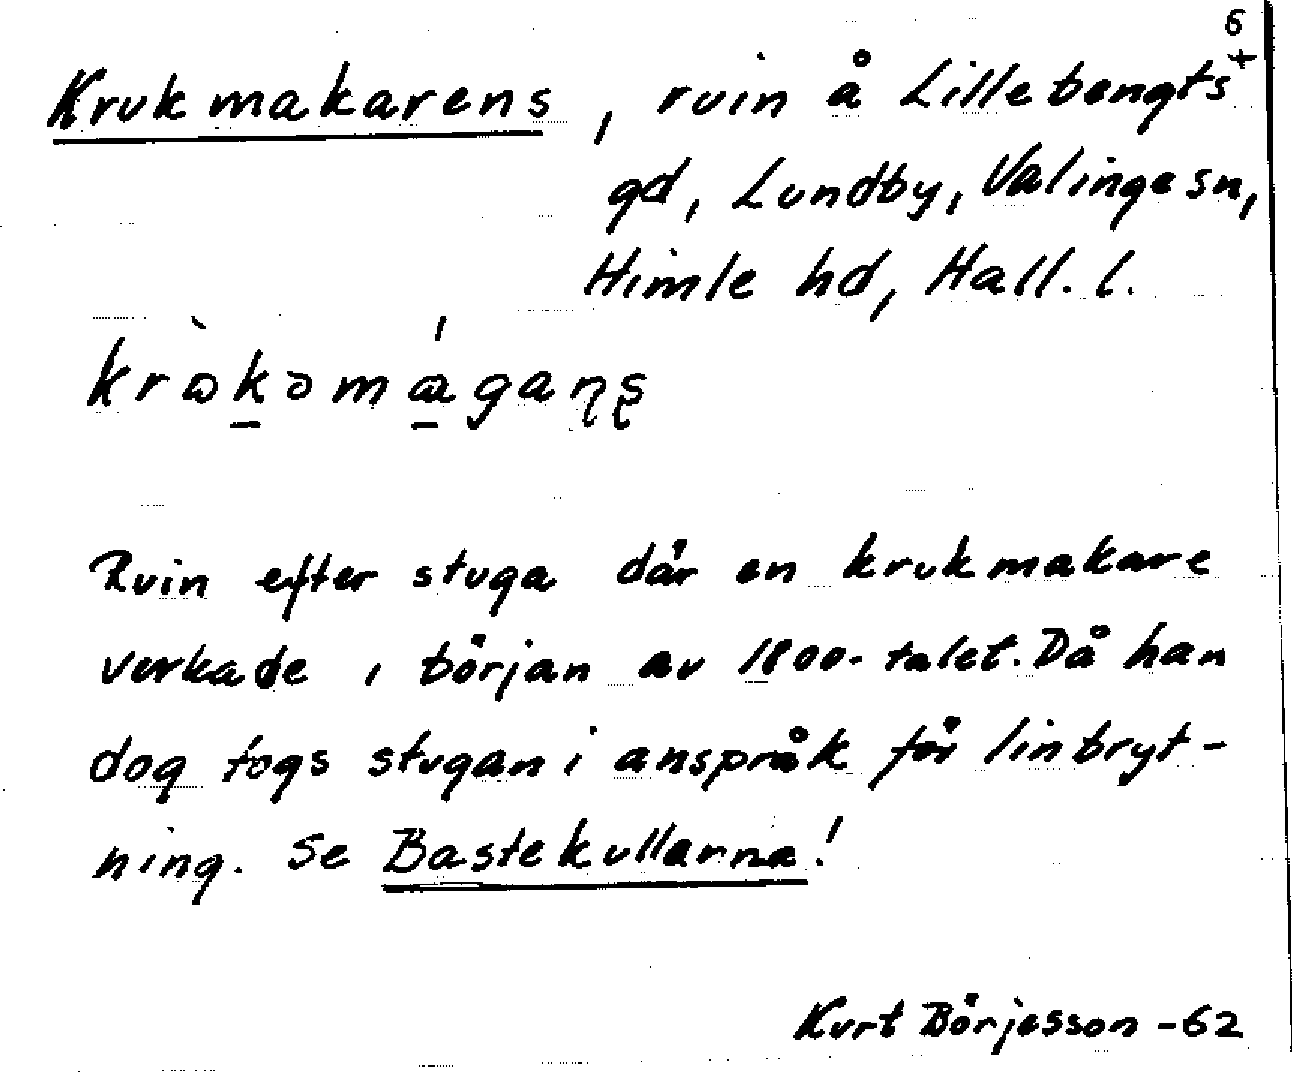 6
+
Krukmakarens, ruin å Lillebengts
gd, Lundby, Valinge sn,
Himle hd, Hall. l.
Ruin efter stuga där en krukmakare
verkade i början av 1800-talet. Då han
dog togs stugan i anspråk för linbryt-
ning. Se Bastekullarna!
Kurt Börjesson -62